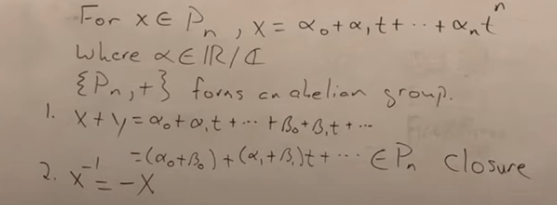 For x ∈ Pn, x = α₀ + α₁t + ·· + αₙtⁿ
where α ∈ ℝ/ℂ
{Pn, +} forms an abelian group.
1. x + y = α₀ + α₁t + ··· + β₀ + β₁t + ···
= (α₀ + β₀) + (α₁ + β₁)t + ··· ∈ Pn closure
2. x⁻¹ = -x